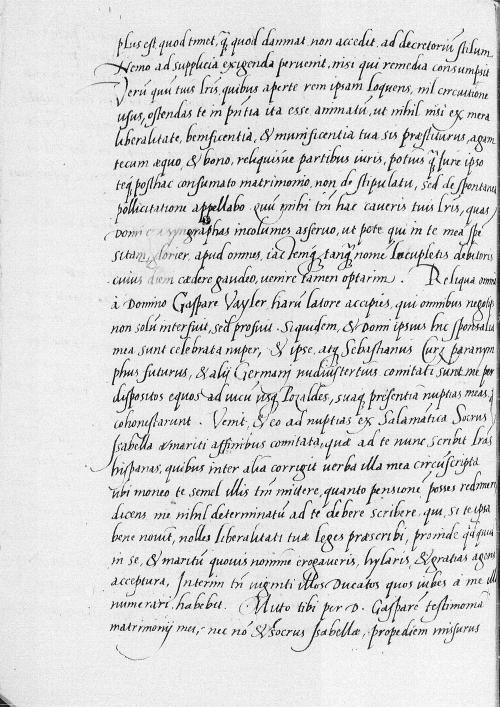 plus est quod timet, q̃ quod damnat non accedit, ad decretoriũ stilum
Nemo ad supplicia exigenda peruenit, nisi qui remedia consumpsit
Verũ quũ tuis lris, quibus aperte rem ipsam loquens, nil circuitione
usus, ostendas te in pñtia ita esse animatũ, ut nihil nisi ex mera
liberalitate, beneficentia, & munificentia tua sis præstiturus, agam
tecum æquo, & bono, reliquisue partibus iuris, potius q̃ iure ipso
teq̃ posthac consumato matrimonio, non de stipulatu, sed de spontanea
pollicitatione appellabo. quũ mihi tm̃ hac caueris tuis lris, quas
domi syngraphas incolumes asseruo, ut pote qui in te mea spe
apud omnes, tanq̃ nomẽ locupletis debitoris
cuius diem cædere gaudeo, uenire tamen optarim. Reliqua omnia
à Domino Gaspare Vayler harũ latore accipies, qui omnibus negotijs
non solũ interfuit, sed profuit. Siquidem, & Domi ipsius hic sponsalia
mea sunt celebrata nuper, & ipse, atq̃ Sebastianus Curz paranym
phus futurus, & alij Germani nudiustertius comitati sunt me per
dispositos equos ad uicũ usq̃ Pozaldes, suaq̃ præsentia nuptias meas
cohonestarunt. Venit, & eo ad nuptias ex Salamãtica Socrus
Isabella mariti affinibus comitata, quæ ad te nunc scribit lras
hispanas, quibus inter alia corrigit uerba illa mea circũscripta
ubi moneo te semel illis tm̃ mittere, quanto pensionẽ posses redimere
dicens me nihil determinatũ ad te debere scribere, qui, si te ipsa
bene nouit, nolles liberalitati tuæ leges præscribi, proinde qd quid
in se, & maritũ quouis nomine erogaueris, hylaris, & gratias agens
acceptura, Interim tñ uiginti illos Ducatos quos iubes a me illi
numerari habebit. Mitto tibi per D. Gasparẽ testimonia
matrimonij mei, nec nõ & Socrus Isabellæ, propediem missurus